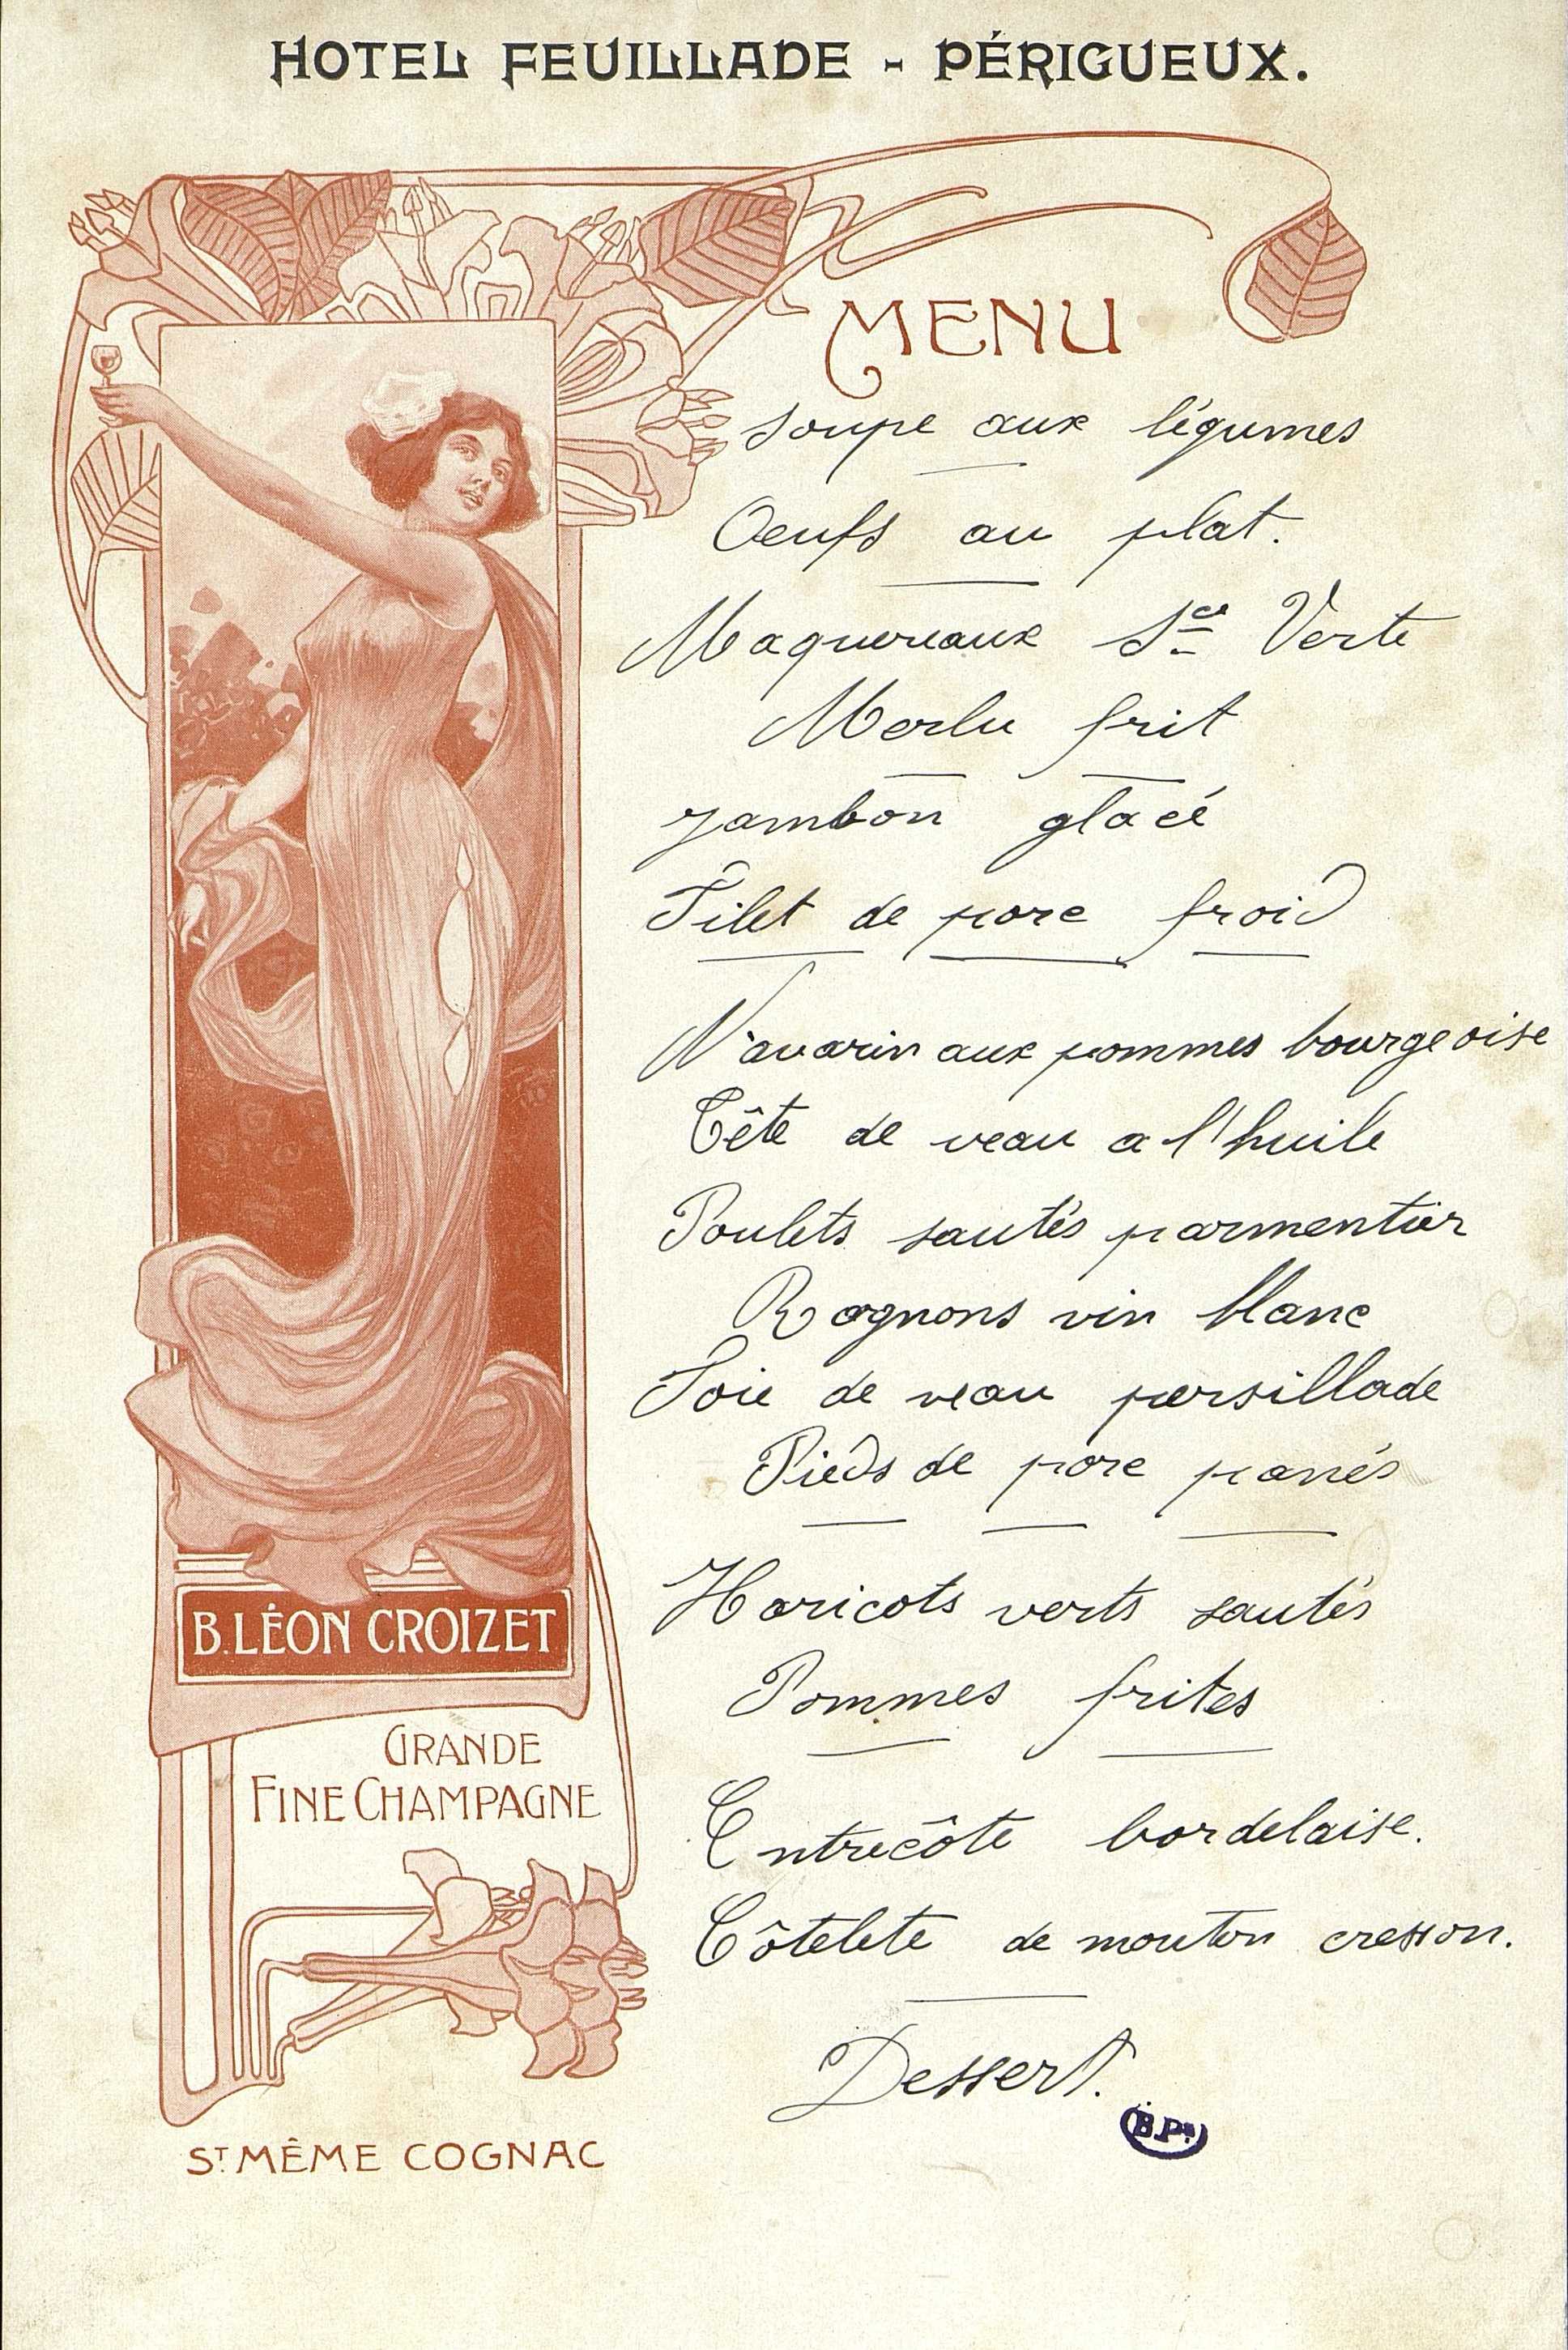 HOTEL FEUILLADE - PÉRIGUEUX.
MENU
Soupe aux légumes
Oeufs au plat.
Maquereaux Sce Verte
Merlu frit
Jambon glacé
Filet de porc froid
Navarin aux pommes bourgeoise
Tête de veau a l'huile
Poulets sautés parmentier
Rognons vin blanc
Foie de veau persillade
Pieds de porc panés
Haricots verts sautés
Pommes frites
Entrecôte bordelaise.
Côtelete de mouton cresson.
Dessert.
B.LÉON CROIZET
GRANDE
FINE CHAMPAGNE
ST MÊME COGNAC